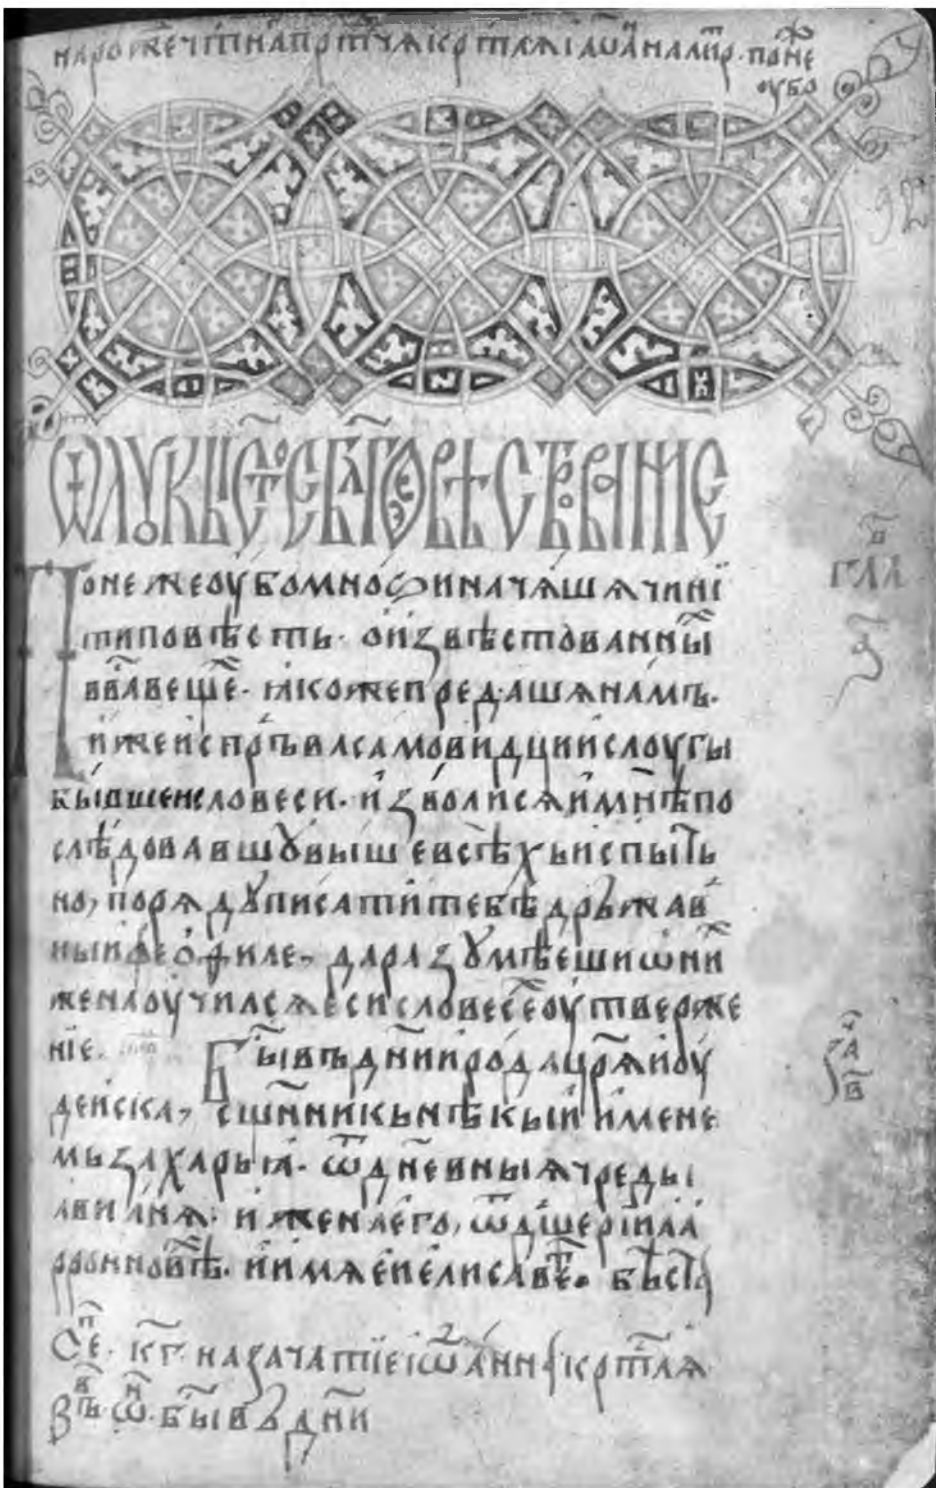 на рожеч҇тно прⷣтчѧ крⷭтлѧ їѡана лиⷮр. понеⷤ
оубо
Ѿ лукы ст҃ое бл҃говѣствованїе
Понеже оубо мноѕи начѧшѧ чинї
ти повѣсть. ѡ и҆звѣстованныⷯ
въ наⷭ҇ вещеⷯ. ꙗкоже предашѧ намъ.
и҆же и҆спръва самовидци и҆ слоугы
бывшеи словеси. и҆зволисѧ и҆ мнѣ по
слѣдовавшꙋ выше всѣхь испыть
но, по рѧдꙋ писати тебѣ дрьжав
ныи ѳеѡфиле, да разꙋмѣеши ѡ ниⷯ
же наоучилсѧ еси словесеⷯ оутверже
нїе. Быⷭ въ дн҃и и҆рода цр҃ѧ и҆оу
деиска, сщ҃нникь нѣкыи и҆мене
мь захарїа. ѿ дневныѧ чреды
авианѧ. и жена его, ѿ дщерїи аа
рѡновѣⷯ. и҆ и҆мѧ еи елисавеⷮ. бѣстⷶ
Сеⷫ. кг҃. на зачатїе їѡанна крⷭтлѧ
Бы въ дн҃и